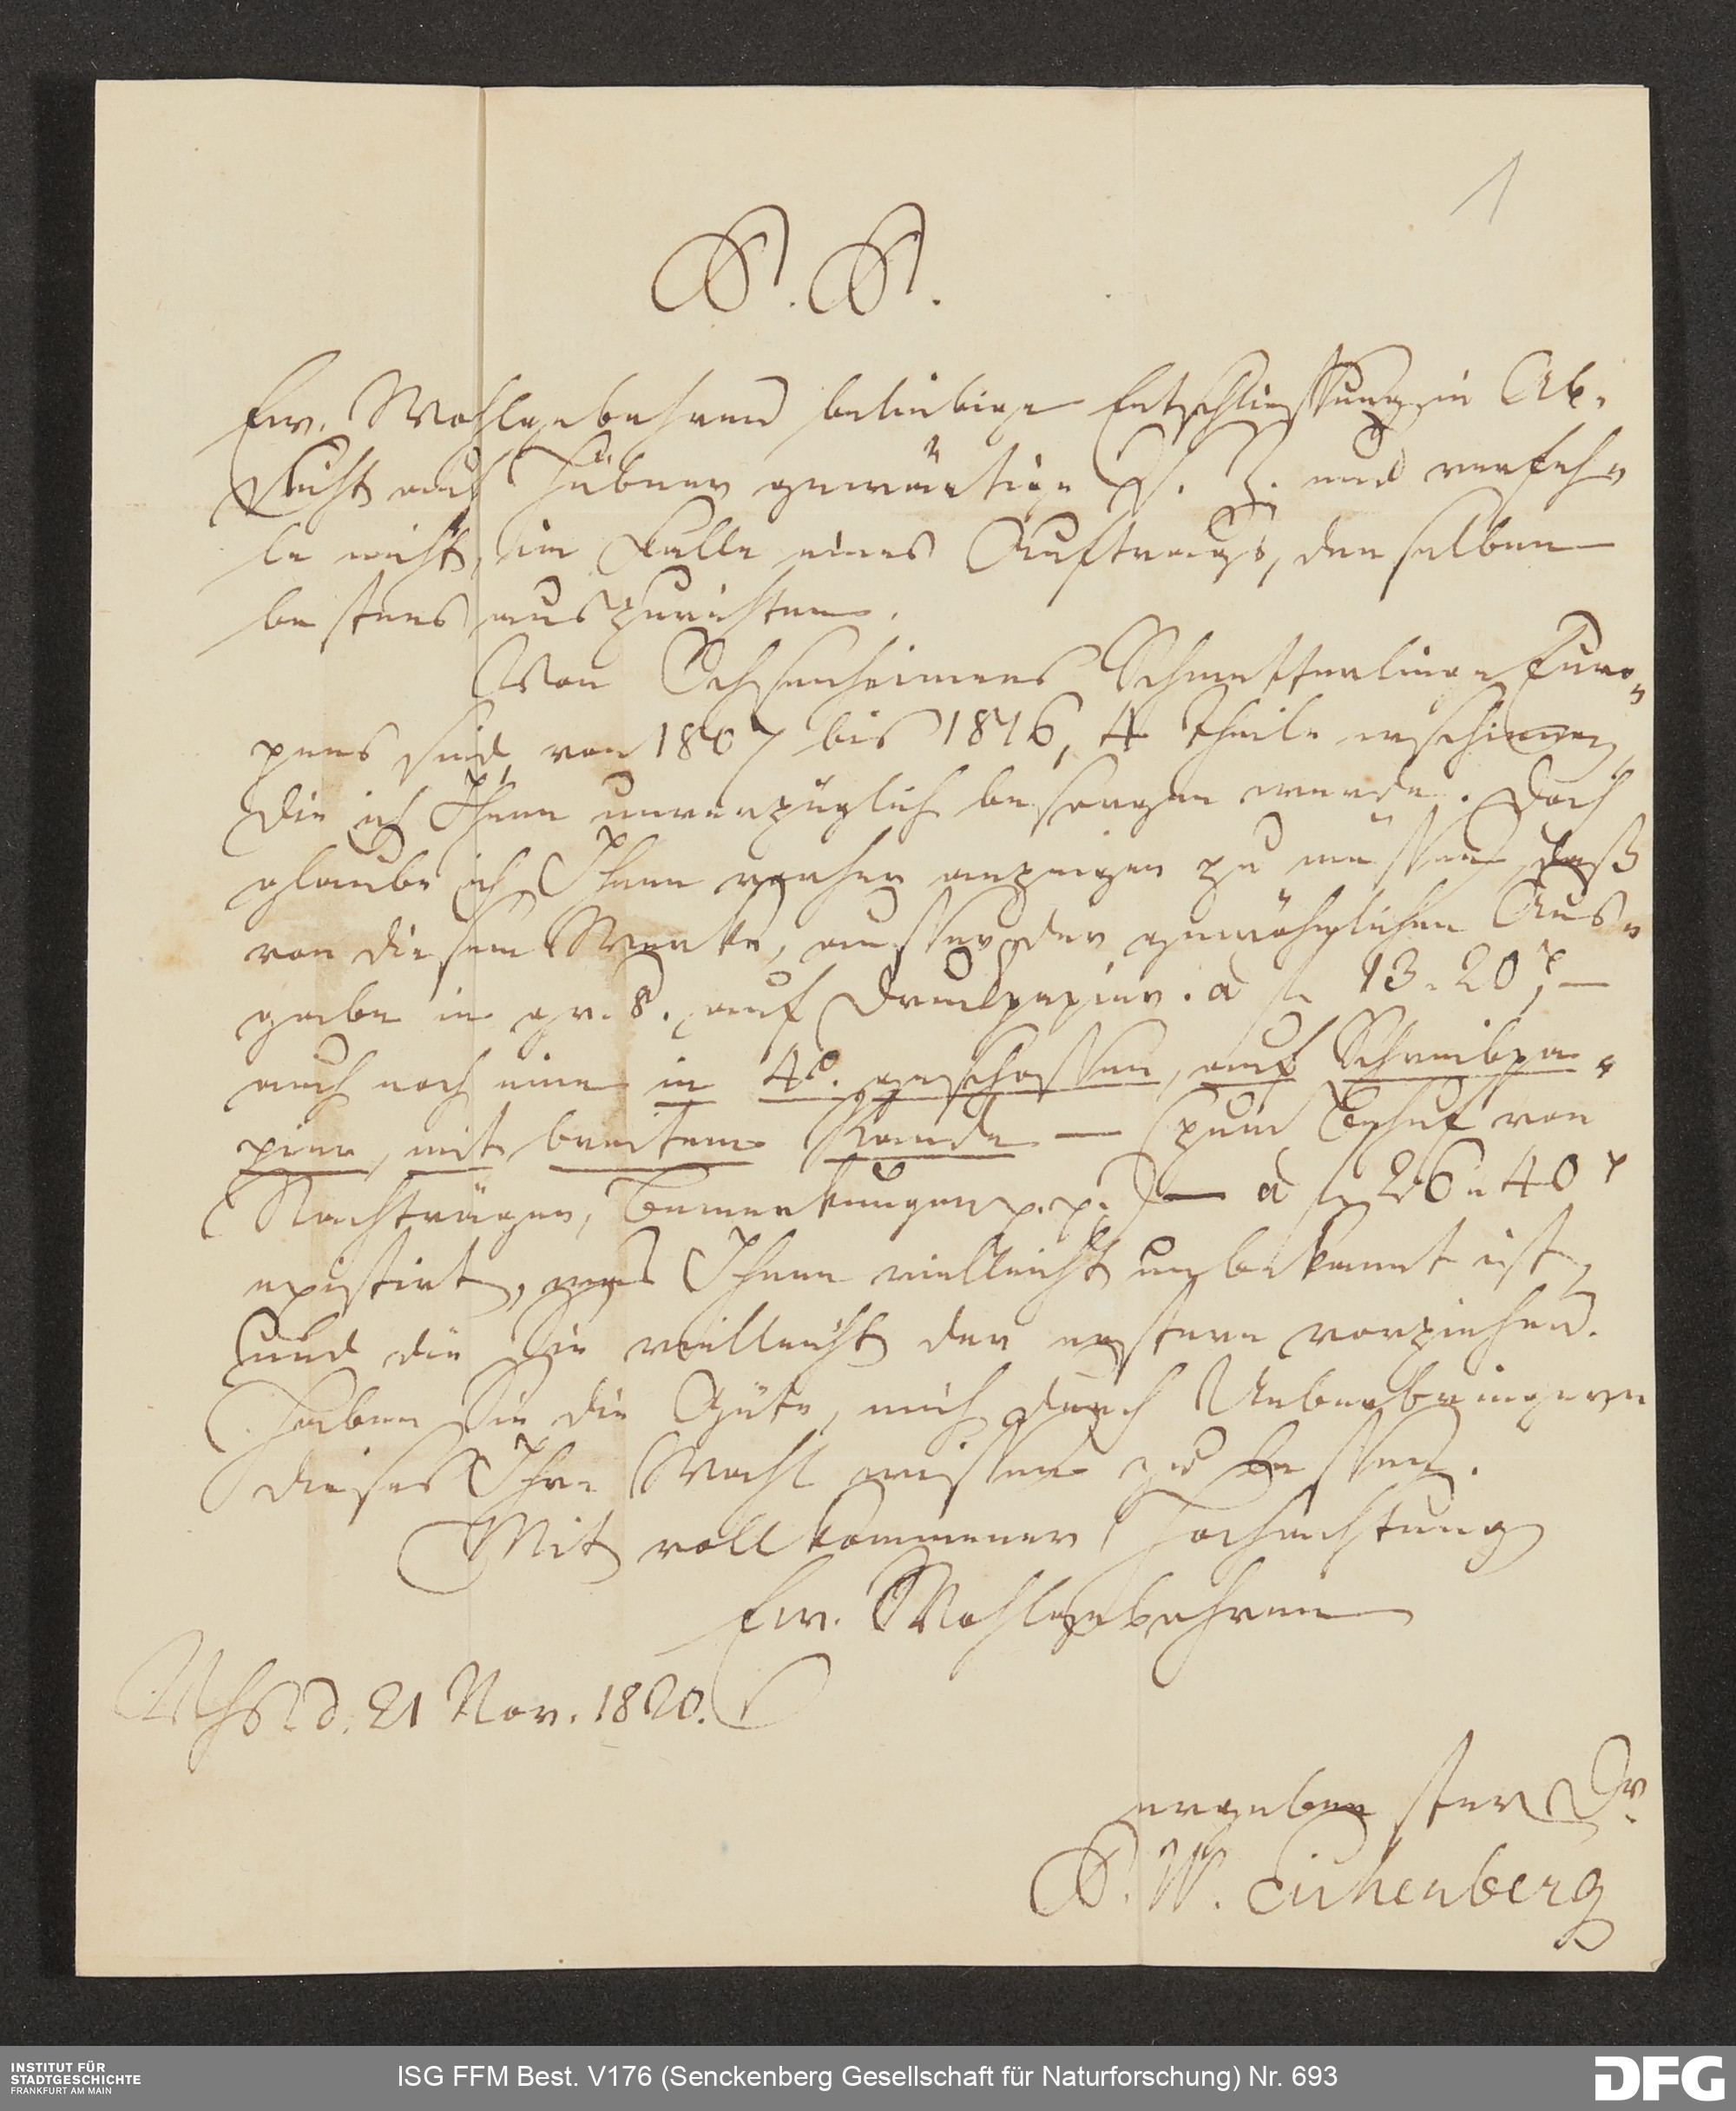 1
P. P.
Ew. Wohlgebohren beliebige Entschliessung in Ab-
sicht auf Hübner gewärtige s. Z. und verfeh-
le nicht, im Falle eines Auftrags, denselben
bestens auszurichten.
Von Ochsenheimers Schmetterlinge Euro-
pens sind von 1807 bis 1816, 4 Theile erschienen,
die ich Ihnen unverzüglich besorgen werde. Doch
glaube ich Ihnen vorher anzeigen zu müssen, daß
von diesem Werke, ausser der gewöhnlichen Aus-
gabe in gr. 8. auf Druckpapier. a f 13. 20 x —
auch noch eine in 4o. geschossen, auf Schreibpa-
pier, mit breitem Rande — (zum Behuf von
Nachträgen, Bemerkungen p. p.) — a f 26. 40 x
existirt, was Ihnen vielleicht unbekannt ist,
und die Sie vielleicht der erstern vorziehen.
Haben Sie die Güte, mich durch Ueberbringern
dieses Ihre Wahl wissen zu lassen.
Mit vollkommener Hochachtung
Ew. Wohlgebohren
d. 21 Nov. 1820.
ergebenster Dr.
P. W. Eichenberg
INSTITUT FÜR
STADTGESCHICHTE
FRANKFURT AM MAIN
ISG FFM Best. V176 (Senckenberg Gesellschaft für Naturforschung) Nr. 693
DFG